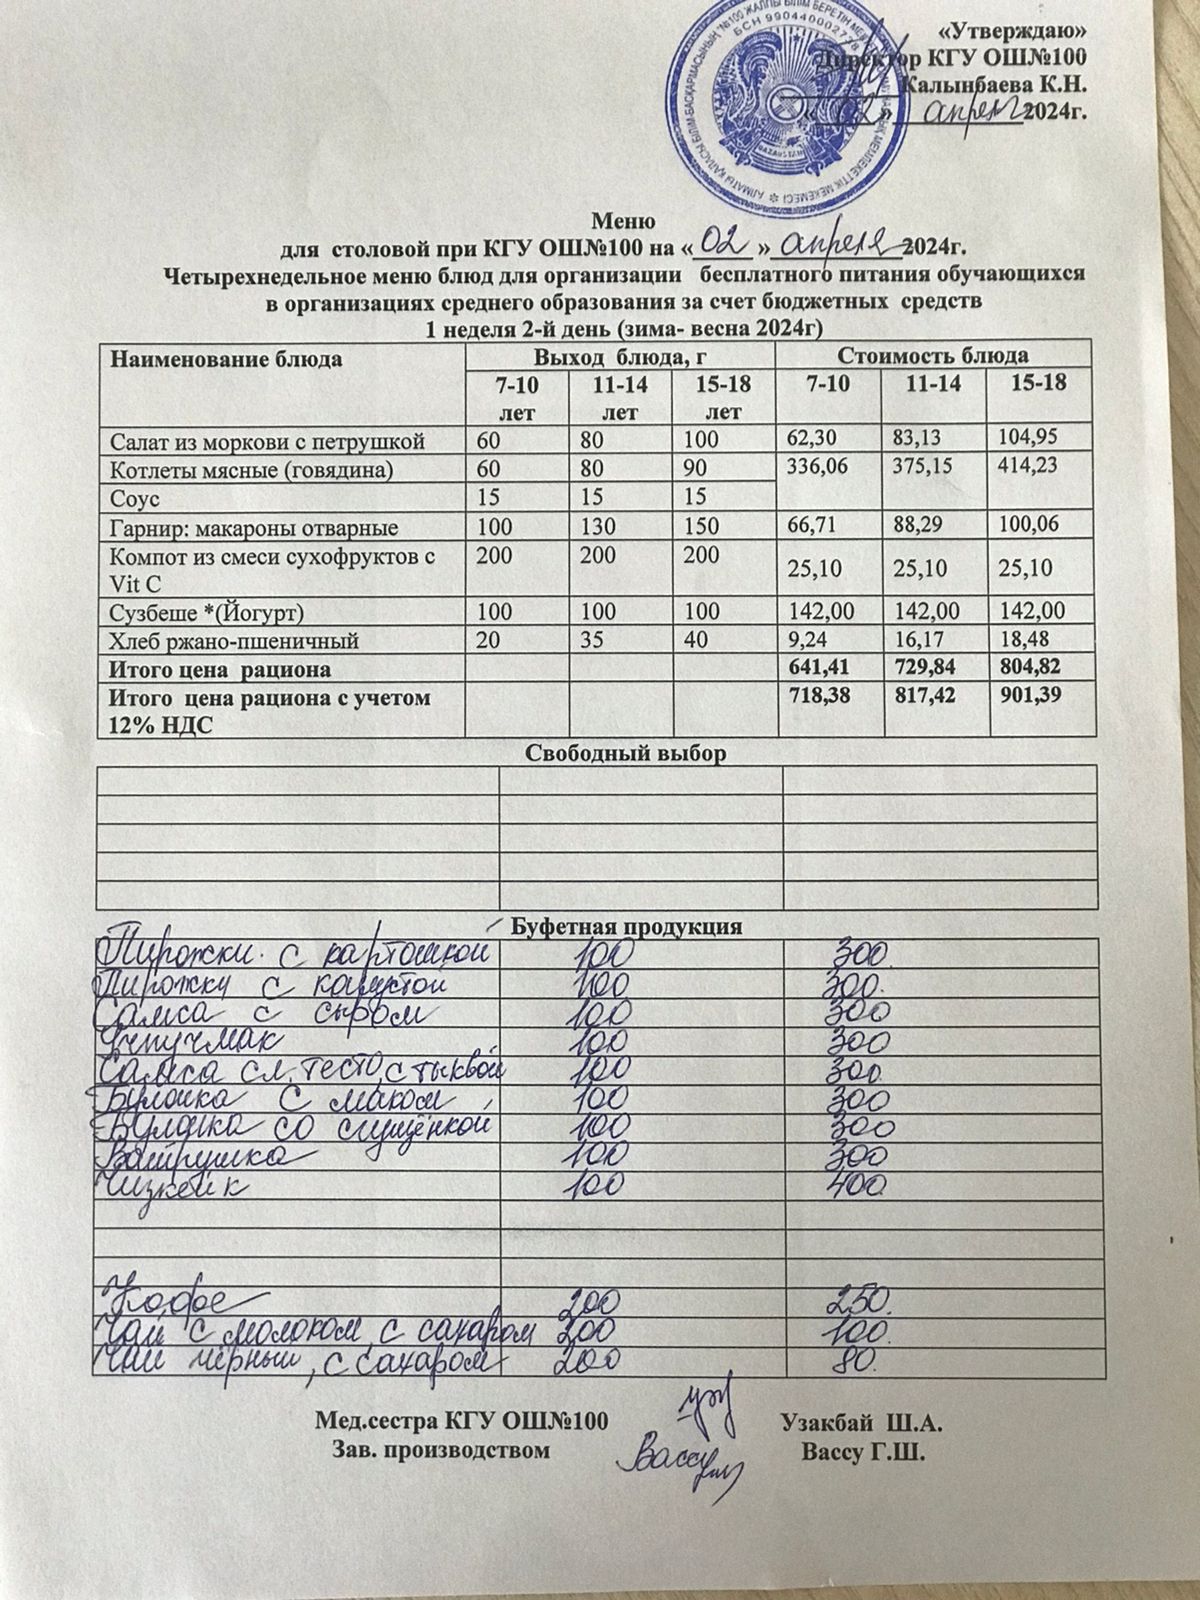 «Утверждаю»
Директор КГУ ОШ№100
Калынбаева К.Н.
«02» апреля 2024г.
БСН 990440002738
QAZAQSTAN
Меню
для столовой при КГУ ОШ№100 на «02» апреля 2024г.
Четырехнедельное меню блюд для организации бесплатного питания обучающихся
в организациях среднего образования за счет бюджетных средств
1 неделя 2-й день (зима- весна 2024г)
Наименование блюда Выход блюда, г Стоимость блюда
7-10 лет 11-14 лет 15-18 лет 7-10 11-14 15-18
Салат из моркови с петрушкой 60 80 100 62,30 83,13 104,95
Котлеты мясные (говядина) 60 80 90 336,06 375,15 414,23
Соус 15 15 15
Гарнир: макароны отварные 100 130 150 66,71 88,29 100,06
Компот из смеси сухофруктов с 200 200 200 25,10 25,10 25,10
Vit C
Сузбеше *(Йогурт) 100 100 100 142,00 142,00 142,00
Хлеб ржано-пшеничный 20 35 40 9,24 16,17 18,48
Итого цена рациона 641,41 729,84 804,82
Итого цена рациона с учетом 718,38 817,42 901,39
12% НДС
Свободный выбор
Буфетная продукция
Пирожки с картошкой 100 300
Пирожки с капустой 100 300.
Самса с сыром 100 300
Учпучмак 100 300
Самса сл. тесто, с тыквой 100 300
Булочка с маком 100 300
Булочка со сгущёнкой 100 300
Ватрушка 100 300
Чизкейк 100 400
Кофе 200 250.
Чай с молоком, с сахаром 200 100.
Чай чёрный, с сахаром 200 80.
Мед.сестра КГУ ОШ№100 Узакбай Ш.А.
Зав. производством Вассу Г.Ш.